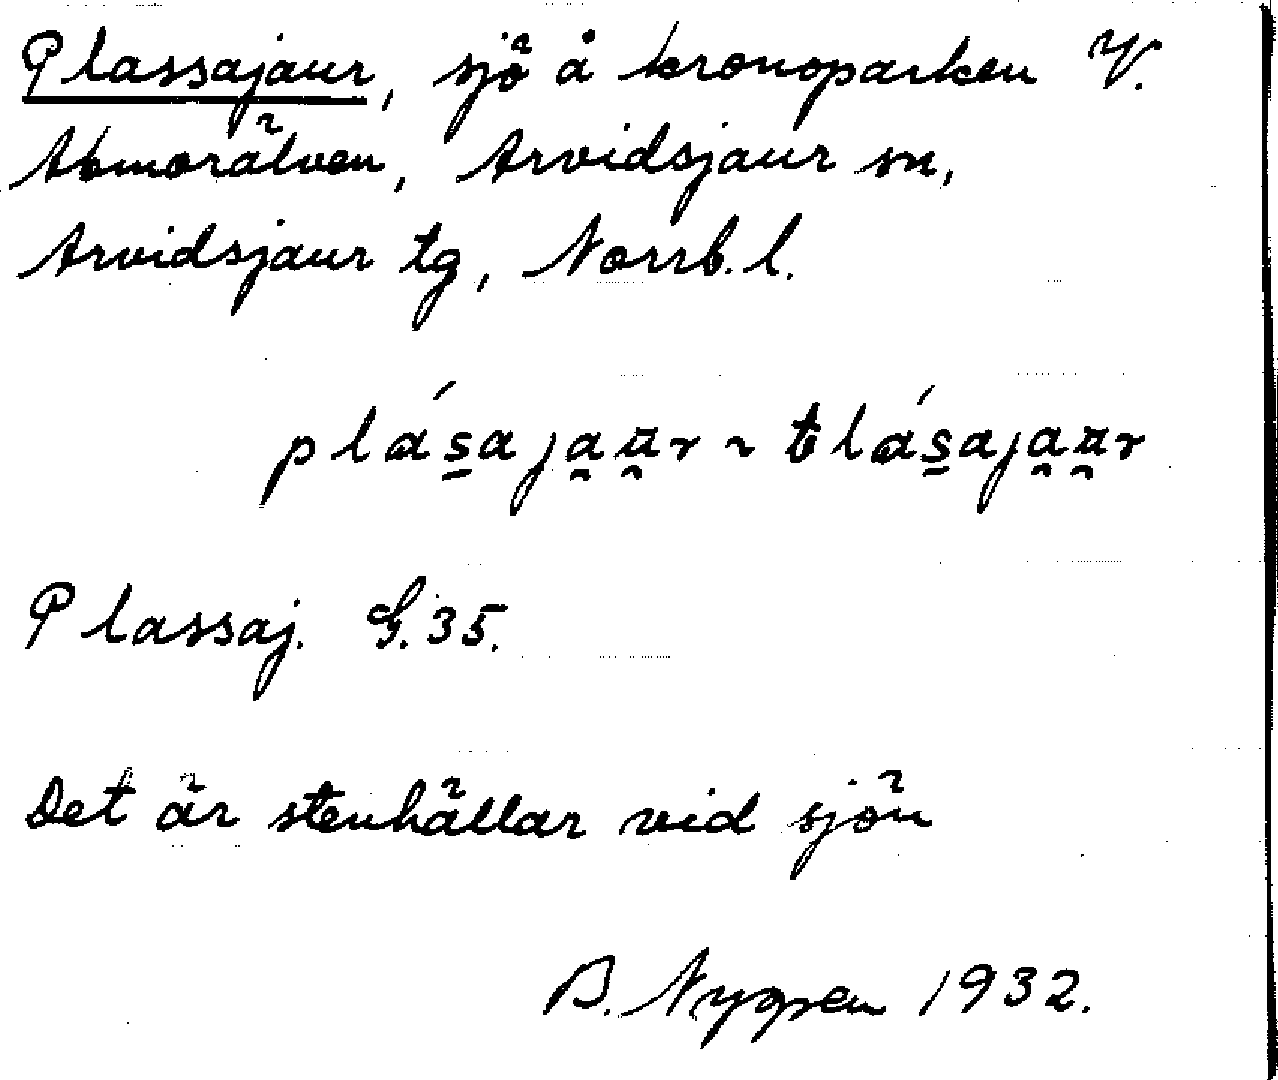 Plassajaur, sjö å kronoparken V.
Abmorälven, Arvidsjaur sn,
Arvidsjaur tg, Norrb. l.
plásajaur ~ tlásajaur
Plassaj. G. 35.
Det är stenhällar vid sjön
B. Nygren 1932.